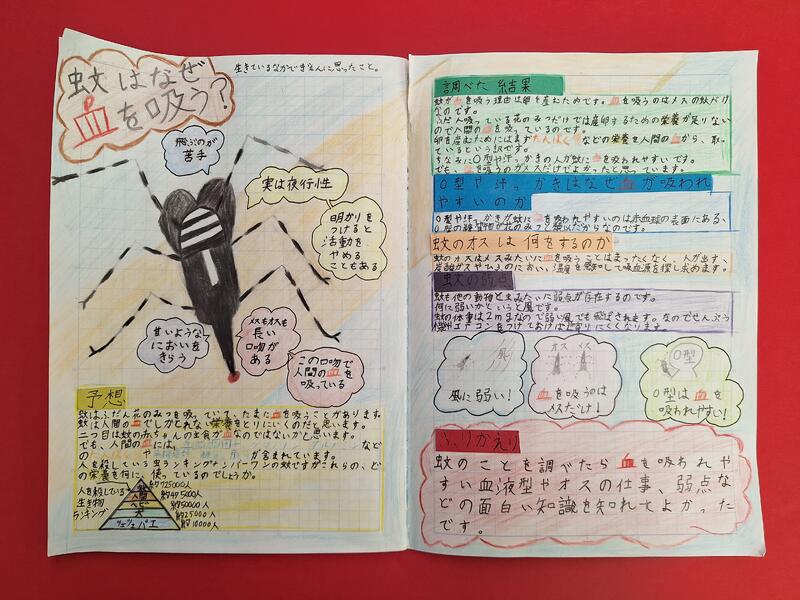 蚊はなぜ
血を吸う?
生きているなかで
飛ぶのが
苦手
実は夜行性
明かりを
つけると
活動を
やめる
こともある
甘いような
においを
きらう
メスもオスも
長い
口吻が
ある
この口吻で
人間の血を
吸っている
予想
蚊はふだん花のみつを吸っていて、たまに血を吸うことがあります。
蚊は人間の血でしかとれない栄養をとりにくのだと思います。
二つ目は蚊の赤ちゃんの主食が血なのではないかと思います。
でも、人間の血には、
などの
が含まれています。
人を殺している虫ランキングナンバーワンの蚊ですがこれらの、ど
の栄養を何に使っているのでしょうか。
人を殺している
生き物
ランキング
蚊 約725000人
人間 約475000人
ヘビ 約50000人
犬 約25000人
ツェツェバエ 約10000人
調べた結果
蚊が血を吸う理由は卵を産むためです。血を吸うのはメスの蚊だけ
なのです。
ふだん吸っている花のみつだけでは産卵するための栄養が足りない
ので人間の血を吸っているのです。
卵を産むためにはまずたんぱく質などの栄養を人間の血から、取っ
ているという訳です。
ちなみにO型や汗っかきの人が蚊に血を吸われやすいです。
でも、血を吸うのがメスだけでよかったと思っています。
O型や汗っかきはなぜ血が吸われ
やすいのか
O型や汗っかきが蚊に血を吸われやすいのは赤血球の表面にある、
O型の
蚊のオスは何をするのか
蚊のオスはメスみたいに血を吸うことはまったくなく、人が出す、
蚊の弱点
蚊も他の動物とまみたいに弱点が存在するのです。
何に弱いかというと風です。
蚊の体重は2mgなので弱い風でも飛ばされます。なのでせんぷう
機やエアコンをつけておけば近寄りにくくなります。
風
風に弱い!
オス メス
血を吸うのは
メスだけ!
O型
O型は血を
吸われやすい!
ふりかえり
蚊のことを調べたら血を吸われや
すい血液型やオスの仕事、弱点な
どの面白い知識を知れてよかった
です。